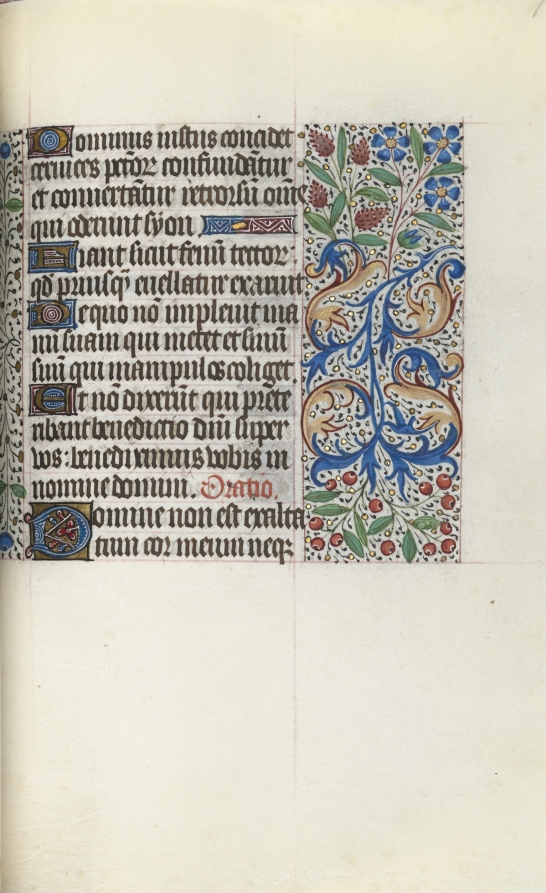 Dominus iustus concidet
cervices pctõrz confundãtur
et convertãtur retrorsũ om̃e
qui oderunt syon
Fiant sicut fenũ tector
qd priusq̃ evellatur exaruit
De quo nõ implevit ma
nũ suam qui metet et sinũ
suũ qui manipulos coliget
Et nõ dixerũt qui prete
ribant benedictio dñi super
vos : benediximus vobis in
nomine domini . Oratio.
Domine non est exalta
tum cor meum neqz